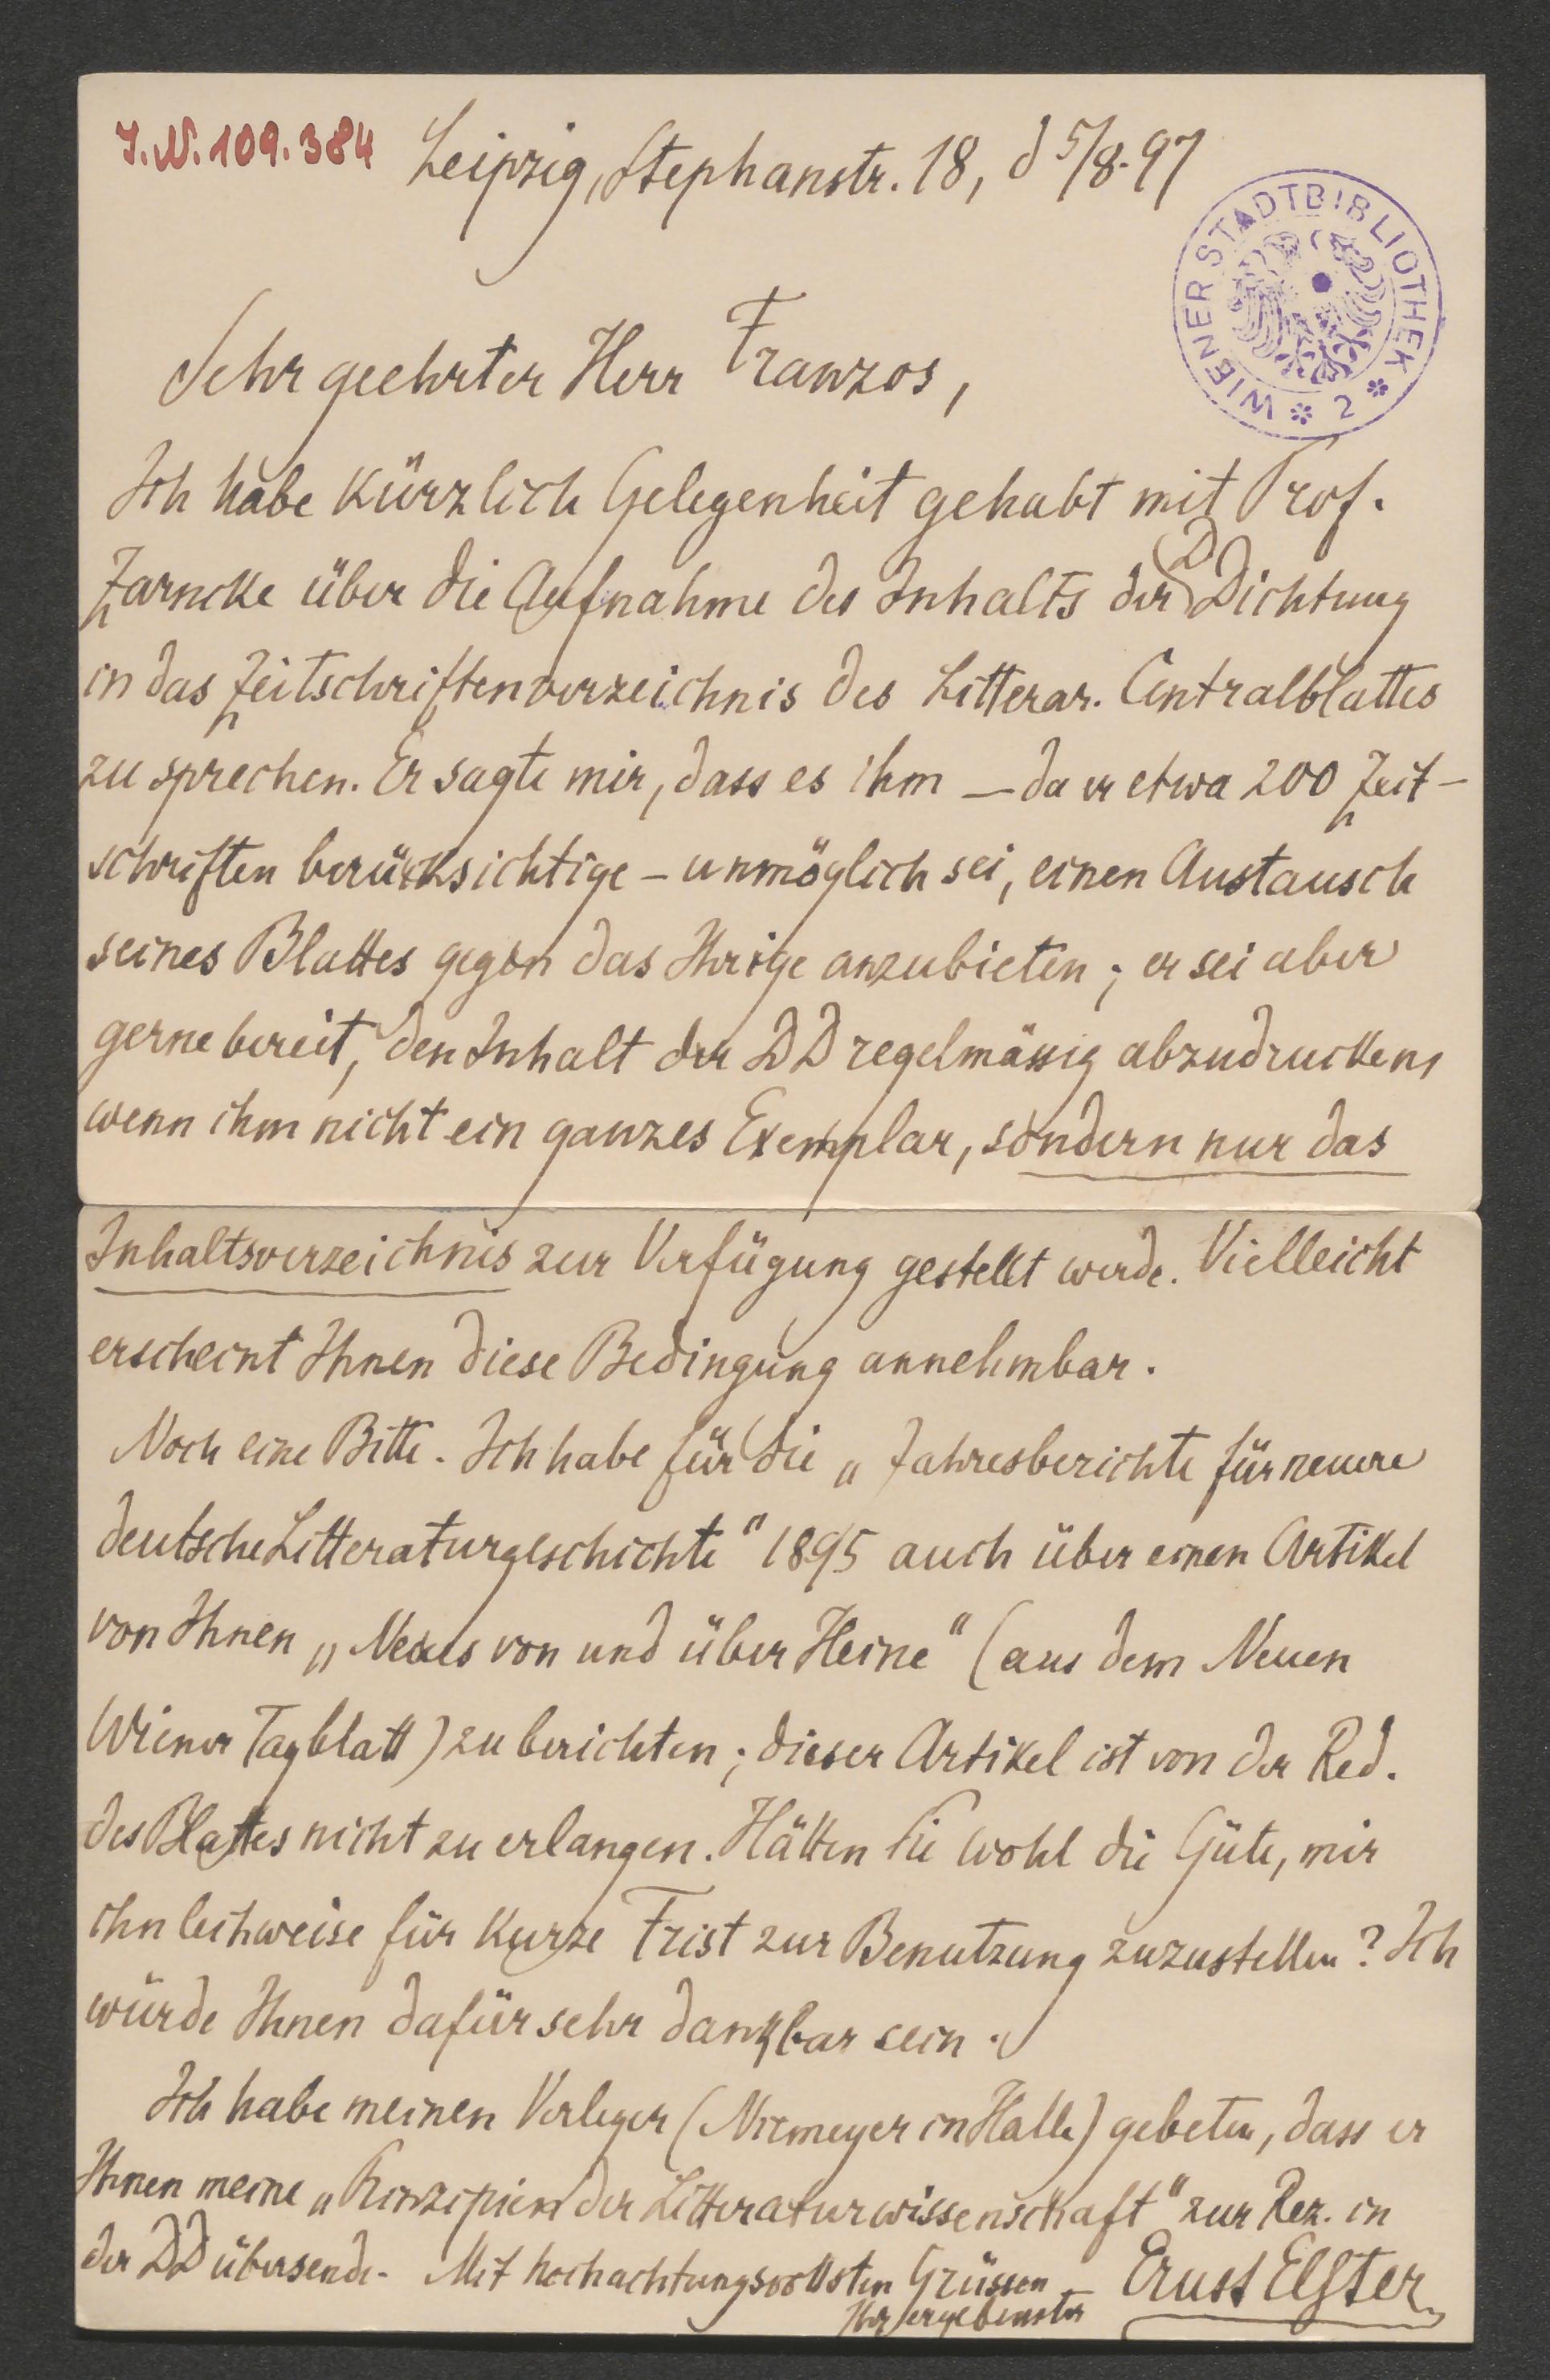 J.N. 109.384
Leipzig, Stephanstr. 18, d 5/8.97
WIENER STADTBIBLIOTHEK * 2 *
Sehr geehrter Herr Franzos,
Ich habe kürzlich Gelegenheit gehabt mit Prof.
Zarncke über die Aufnahme des Inhalts der D Dichtung
in das Zeitschriftenverzeichnis des Litterar. Centralblattes
zu sprechen. Er sagte mir, dass es ihm – da er etwa 200 Zeit-
schriften berücksichtige – unmöglich sei, einen Austausch
seines Blattes gegen das Ihrige anzubieten; er sei aber
gerne bereit, den Inhalt der DD regelmässig abzudrucken,
wenn ihm nicht ein ganzes Exemplar, sondern nur das
Inhaltsverzeichnis zur Verfügung gestellt werde. Vielleicht
erscheint Ihnen diese Bedingung annehmbar.
Noch eine Bitte. Ich habe für die „Jahresberichte für neuere
deutsche Litteraturgeschichte" 1895 auch über einen Artikel
von Ihnen „Neues von und über Heine" (aus dem Neuen
Wiener Tagblatt) zu berichten; dieser Artikel ist von der Red.
des Blattes nicht zu erlangen. Hätten Sie wohl die Güte, mir
ihn leihweise für kurze Frist zur Benutzung zuzustellen? Ich
würde Ihnen dafür sehr dankbar sein.
Ich habe meinen Verleger (Niemeyer in Halle) gebeten, dass er
Ihnen meine „Prinzipien der Litteraturwissenschaft" zur Rez. in
der DD übersende. Mit hochachtungsvollsten Grüssen –
Ihr ergebenster
Ernst Elster